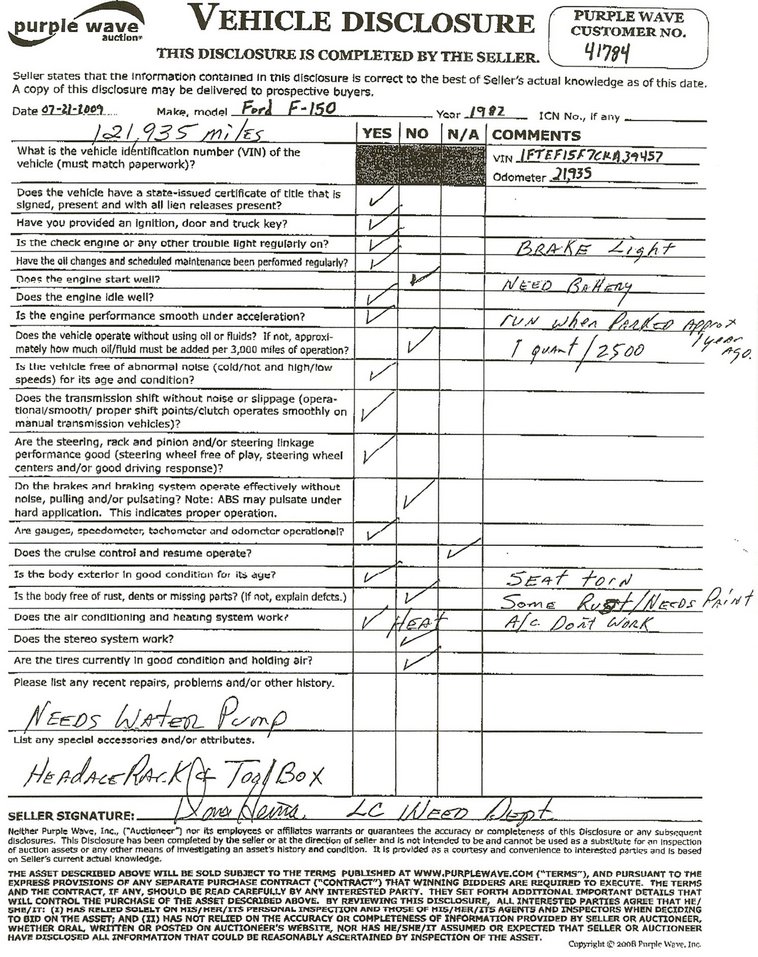 purple wave
auction®
VEHICLE DISCLOSURE
THIS DISCLOSURE IS COMPLETED BY THE SELLER.
PURPLE WAVE
CUSTOMER NO.
41784
Seller states that the information contained in this disclosure is correct to the best of Seller's actual knowledge as of this date.
A copy of this disclosure may be delivered to prospective buyers.
Date 07-21-2009 Make, model Ford F-150 Year 1982 ICN No., if any
121,935 miles YES NO N/A COMMENTS
What is the vehicle identification number (VIN) of the
vehicle (must match paperwork)?
VIN 1FTEF15F7CRA39457
Odometer 21,935
Does the vehicle have a state-issued certificate of title that is
signed, present and with all lien releases present? ✓
Have you provided an ignition, door and truck key? ✓
Is the check engine or any other trouble light regularly on? ✓ BRAKE Light
Have the oil changes and scheduled maintenance been performed regularly? ✓
Does the engine start well? ✓ NEED BATTERY
Does the engine idle well? ✓
Is the engine performance smooth under acceleration? ✓ run when PARKED Approx
1 year
Ago.
Does the vehicle operate without using oil or fluids? If not, approxi-
mately how much oil/fluid must be added per 3,000 miles of operation? ✓ 1 quart/2500
Is the vehicle free of abnormal noise (cold/hot and high/low
speeds) for its age and condition? ✓
Does the transmission shift without noise or slippage (opera-
tional/smooth/ proper shift points/clutch operates smoothly on
manual transmission vehicles)? ✓
Are the steering, rack and pinion and/or steering linkage
performance good (steering wheel free of play, steering wheel
centers and/or good driving response)? ✓
Do the brakes and braking system operate effectively without
noise, pulling and/or pulsating? Note: ABS may pulsate under
hard application. This indicates proper operation. ✓
Are gauges, speedometer, tachometer and odometer operational? ✓
Does the cruise control and resume operate? ✓
Is the body exterior in good condition for its age? ✓ SEAT torn
Is the body free of rust, dents or missing parts? (If not, explain defcts.) ✓ Some Rust/NEEDS PAINT
Does the air conditioning and heating system work? ✓ HEAT A/C DON'T WORK
Does the stereo system work? ✓
Are the tires currently in good condition and holding air? ✓
Please list any recent repairs, problems and/or other history.
NEEDS WATER PUMP
List any special accessories and/or attributes.
HEADACE RACK & Tool BOX
SELLER SIGNATURE: LC WEED Dept.
Neither Purple Wave, Inc., ("Auctioneer") nor its employees or affiliates warrants or guarantees the accuracy or completeness of this Disclosure or any subsequent
disclosures. This Disclosure has been completed by the seller or at the direction of seller and is not intended to be and cannot be used as a substitute for an inspection
of auction assets or any other means of investigating an asset's history and condition. It is provided as a courtesy and convenience to interested parties and is based
on Seller's current actual knowledge.
THE ASSET DESCRIBED ABOVE WILL BE SOLD SUBJECT TO THE TERMS PUBLISHED AT WWW.PURPLEWAVE.COM ("TERMS"), AND PURSUANT TO THE
EXPRESS PROVISIONS OF ANY SEPARATE PURCHASE CONTRACT ("CONTRACT") THAT WINNING BIDDERS ARE REQUIRED TO EXECUTE. THE TERMS
AND THE CONTRACT, IF ANY, SHOULD BE READ CAREFULLY BY ANY INTERESTED PARTY. THEY SET FORTH ADDITIONAL IMPORTANT DETAILS THAT
WILL CONTROL THE PURCHASE OF THE ASSET DESCRIBED ABOVE. BY REVIEWING THIS DISCLOSURE, ALL INTERESTED PARTIES AGREE THAT HE/
SHE/IT: (I) HAS RELIED SOLELY ON HIS/HER/ITS PERSONAL INSPECTION AND THOSE OF HIS/HER/ITS AGENTS AND INSPECTORS WHEN DECIDING
TO BID ON THE ASSET; AND (II) HAS NOT RELIED ON THE ACCURACY OR COMPLETENESS OF INFORMATION PROVIDED BY SELLER OR AUCTIONEER,
WHETHER ORAL, WRITTEN OR POSTED ON AUCTIONEER'S WEBSITE, NOR HAS HE/SHE/IT ASSUMED OR EXPECTED THAT SELLER OR AUCTIONEER
HAVE DISCLOSED ALL INFORMATION THAT COULD BE REASONABLY ASCERTAINED BY INSPECTION OF THE ASSET.
Copyright © 2008 Purple Wave, Inc.